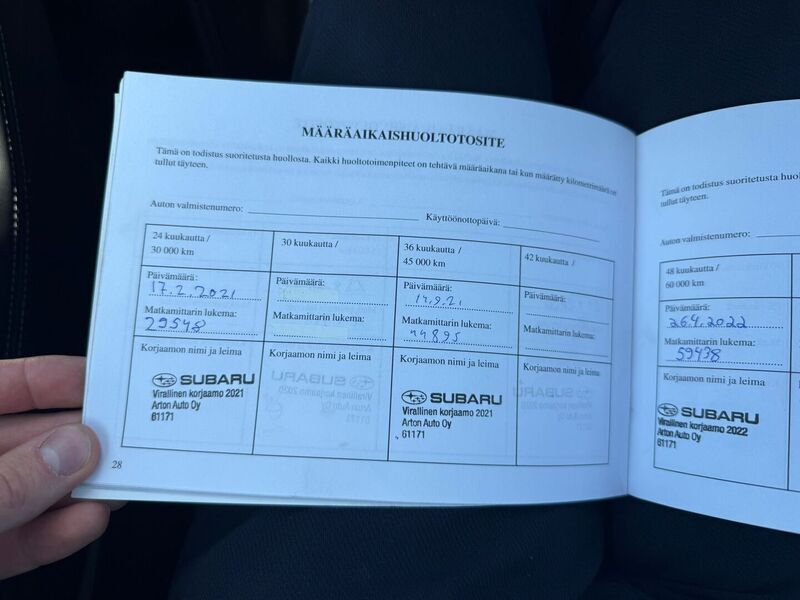 MÄÄRÄAIKAISHUOLTOTOSITE
Tämä on todistus suoritetusta huollosta. Kaikki huoltotoimenpiteet on tehtävä määräaikana tai kun määrätty kilometrimäärä on
tullut täyteen.
Auton valmistenumero:
Käyttöönottopäivä:
24 kuukautta /
30 000 km
Päivämäärä:
17.2.2021
Matkamittarin lukema:
29548
Korjaamon nimi ja leima
SUBARU
Virallinen korjaamo 2021
Arton Auto Oy
61171
30 kuukautta /
Päivämäärä:
Matkamittarin lukema:
Korjaamon nimi ja leima
36 kuukautta /
45 000 km
Päivämäärä:
14.9.21
Matkamittarin lukema:
44895
Korjaamon nimi ja leima
SUBARU
Virallinen korjaamo 2021
Arton Auto Oy
61171
42 kuukautta /
Päivämäärä:
Matkamittarin lukema:
Korjaamon nimi ja leima
28
Tämä on todistus suoritetusta
tullut täyteen.
Auton valmistenumero:
48 kuukautta /
60 000 km
Päivämäärä:
26.4.2022
Matkamittarin lukema:
59438
Korjaamon nimi ja leima
SUBARU
Virallinen korjaamo 2022
Arton Auto Oy
61171